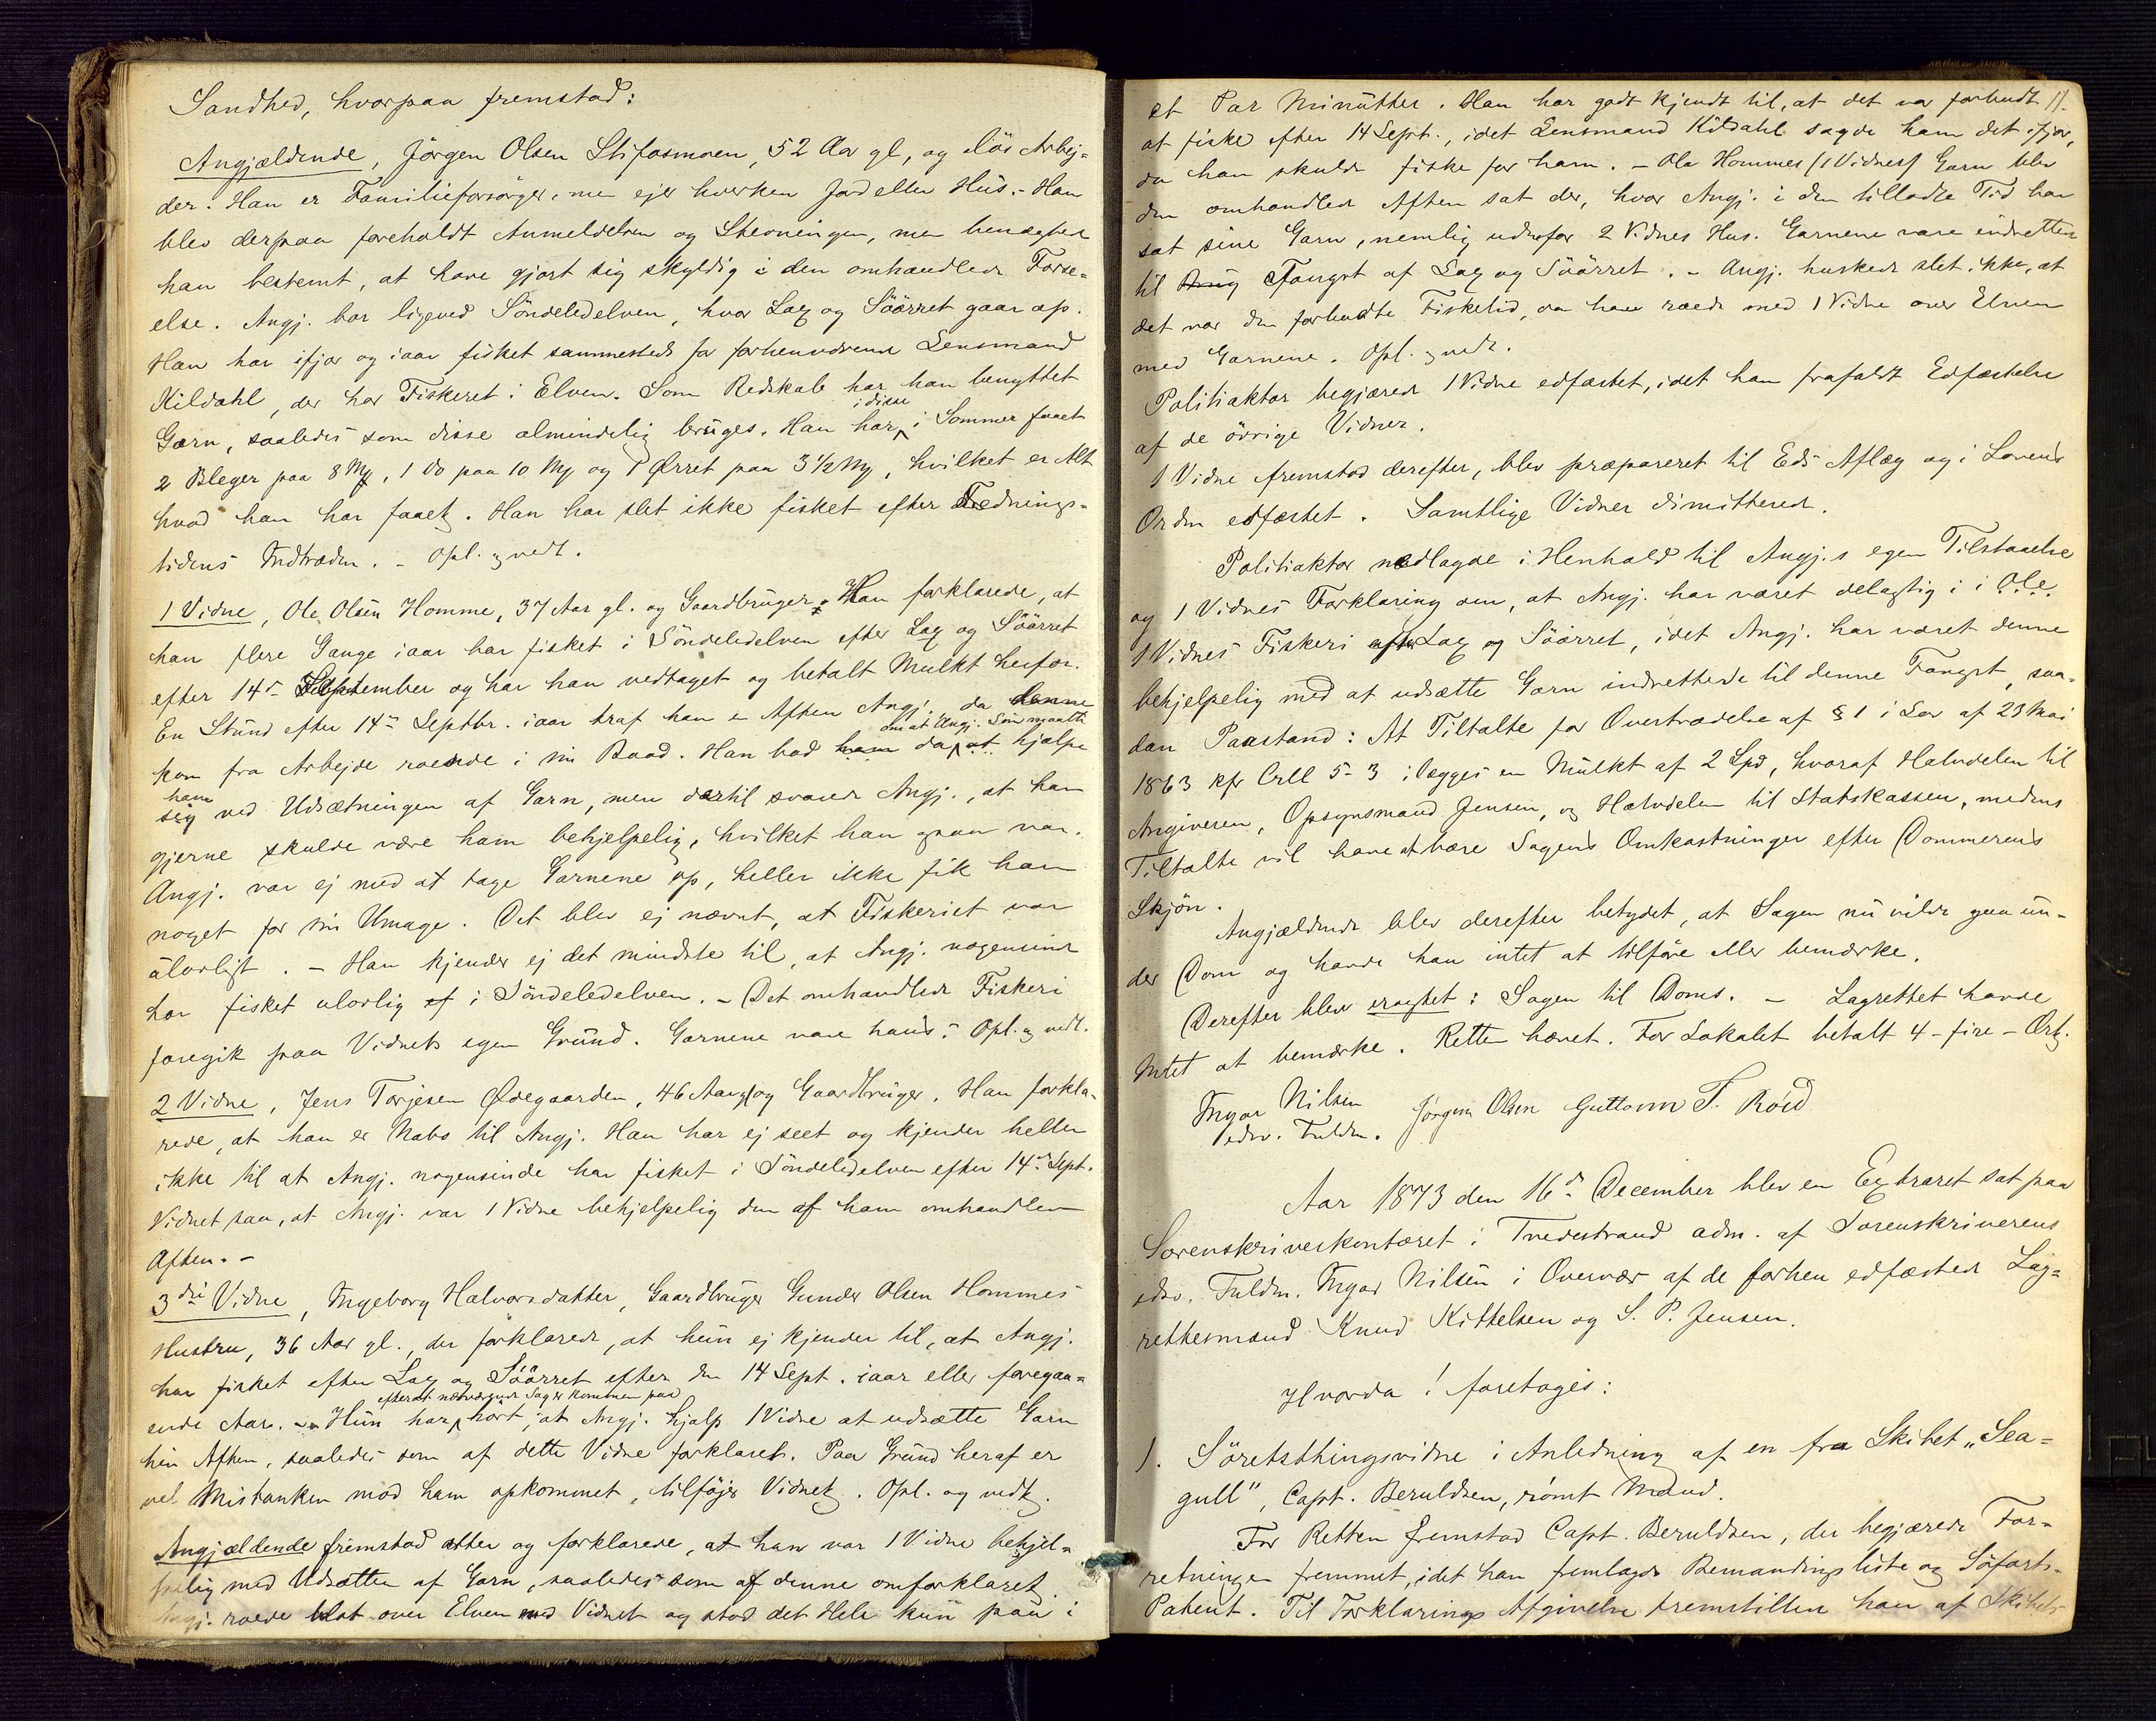 Sandhed, hvorpaa fremstod:
Angjældende, Jörgen Olsen Stifosmoen, 52 Aar gl, og lös Arbej-
der. Han er Familieforsörger, men ejer hverken Jord eller Hus. - Han
blev derpaa foreholdt Anmeldelsen og Stevningen, men benægtede
han bestemt, at have gjort sig skyldig i den omhandlede Forse-
else. Angj. bor ligeved Söndeledelven, hvor Lax og Söörret gaar op.
Han har ifjor og iaar fisket sammesteds for forhenværende Lensmand
Kildahl, der har Fiskeret i Elven. Som Redskab har han benyttet
Garn, saaledes som disse almindelig bruges. Han har i disse i Sommer faaet
2 Bleger paa 8 Mk, 1 do paa 10 Mk og 1 Ørret paa 3 1/2 Mk, hvilket er Alt
hvad han har faaet. Han har slet ikke fisket efter Frednings-
tidens Indtræden. - Opl. & vedt.
1 Vidne, Ole Olsen Homme, 37 Aar gl. og Gaardbruger. Han forklarede, at
han flere Gange iaar har fisket i Söndeledelven efter Lax og Söörret
efter 14de September og har han vedtaget og betalt Mulkt herfor.
En Stund efter 14de Septbr. iaar traf han en Aften Angj. da denne
kom fra Arbejde roende i sin Baad. Han bad ham da om at Angj. Sön maatte at hjælpe
sig ham ved Udsætningen af Garn, men dertil svarede Angj., at han
gjerne skulde være ham behjelpelig, hvilket han ogsaa var.
Angj. var ej med at tage Garnene op, heller ikke fik han
noget for sin Umage. Det blev ej nævnt, at Fiskeriet var
ulovligt. - Han kjender ej det mindste til, at Angj. nogensinde
har fisket ulovlig ef i Söndeledelven. - Det omhandlede Fiskeri
foregik paa Vidnets egen Grund. Garnene vare hans. Opl. & vedt.
2 Vidne, Jens Torjesen Ødegaarden, 46 Aar gl og Gaardbruger. Han forkla-
rede, at han er Nabo til Angj. Han har ej seet og kjender heller
ikke til at Angj. nogensinde har fisket i Söndeledelven efter 14de Sept.
Vidnet saa, at Angj. var 1 Vidne behjelpelig den af ham omhandlede
Aften. -
3die Vidne, Ingeborg Halvorsdatter, Gaardbruger Gunder Olsen Hommes
Hustru, 36 Aar gl., der forklarede, at hun ej kjender til, at Angj.
har fisket efter Lax og Söörret efter den 14 Sept. iaar eller foregaa-
ende Aar. - Hun har efterat nærværende Sag er kommen paa hört, at Angj. hjalp 1 Vidne at udsætte Garn
hin Aften, saaledes som af dette Vidne forklaret. Paa Grund heraf er
vel Mistanken mod ham opkommet, tilföjer Vidnet. Opl. og vedt.
Angjældende fremstod atter og forklarede, at han var 1 Vidne behjel-
pelig med Udsætten af Garn, saaledes som af denne omforklaret.
Angj. roede blot over Elven med Vidnet og stod det Hele kun paa i
et Par Minutter. Han har godt kjendt til, at det var forbudt
at fiske efter 14 Sept., idet Lensmand Kildahl sagde ham det ifjor,
da han skulde fiske for ham. - Ole Hommes (1 Vidnes) Garn blev
den omhandlede Aften sat der, hvor Angj. i den tilladte Tid har
sat sine Garn, nemlig udenfor 2 Vidnes Hus. Garnene vare indrettede
til Brug Fangst af Lax og Söörret. - Angj. huskede slet ikke, at
det var den forbudte Fisketid, da han roede med 1 Vidne over Elven
med Garnene. Opl. & vedt.
Politiaktor begjærede 1 Vidne edfæstet, idet han frafaldt Edfæstelse
af de övrige Vidner.
1 Vidne fremstod derefter, blev præpareret til Eds Aflæg og i Lovens
Orden edfæstet. Samtlige Vidner dimitterede.
Politiaktor nedlagde i Henhold til Angj.s egen Tilstaaelse
og 1 Vidnes Forklaring om, at Angj. har været delagtig i i Ole
1 Vidnes Fiskeri efter Lax og Söörret, idet Angj. har været denne
behjelpelig med at udsætte Garn indrettede til denne Fangst, saa-
dan Paastand: At Tiltalte for Overtrædelse af § 1 i Lov af 23 Mai
1863 kfr Crll 5-3 ilægges en Mulkt af 2 Spd, hvoraf Halvdelen til
Angiveren, Opsynsmand Jensen, og Halvdelen til Statskassen, medens
Tiltalte vil have at bære Sagens Omkostninger efter Dommerens
Skjön.
Angjældende blev derefter betydet, at Sagen nu vilde gaa un-
der Dom og havde han intet at tilföre eller bemærke.
Derefter blev eragtet: Sagen til Doms. - Lagrettet havde
Intet at bemærke. Retten hævet. For Lokalet betalt 4 - fire - Ort.
Ingvar Nilsen Jörgen Olsen Guttorm T. Röed
edsv. Fuldm.
Aar 1873 den 16de December blev en Extraret sat paa
Sorenskriverkontoret i Tvedestrand adm. af Sorenskriverens
edsv. Fuldm. Ingvar Nilsen i Overvær af de forhen edfæstede Lag-
rettesmænd Knud Kittelsen og S. P. Jensen.
Hvorda! foretoges:
1. Söretsthingsvidne i Anledning af en fra Skibet „Sea-
gull", Capt. Beruldsen, römt Mand.
For Retten fremstod Capt. Beruldsen, der begjærede For-
retningen fremmet, idet han fremlagde Bemandingsliste og Söfarts-
Patent. Til Forklarings Afgivelse fremstillen han af Skibets